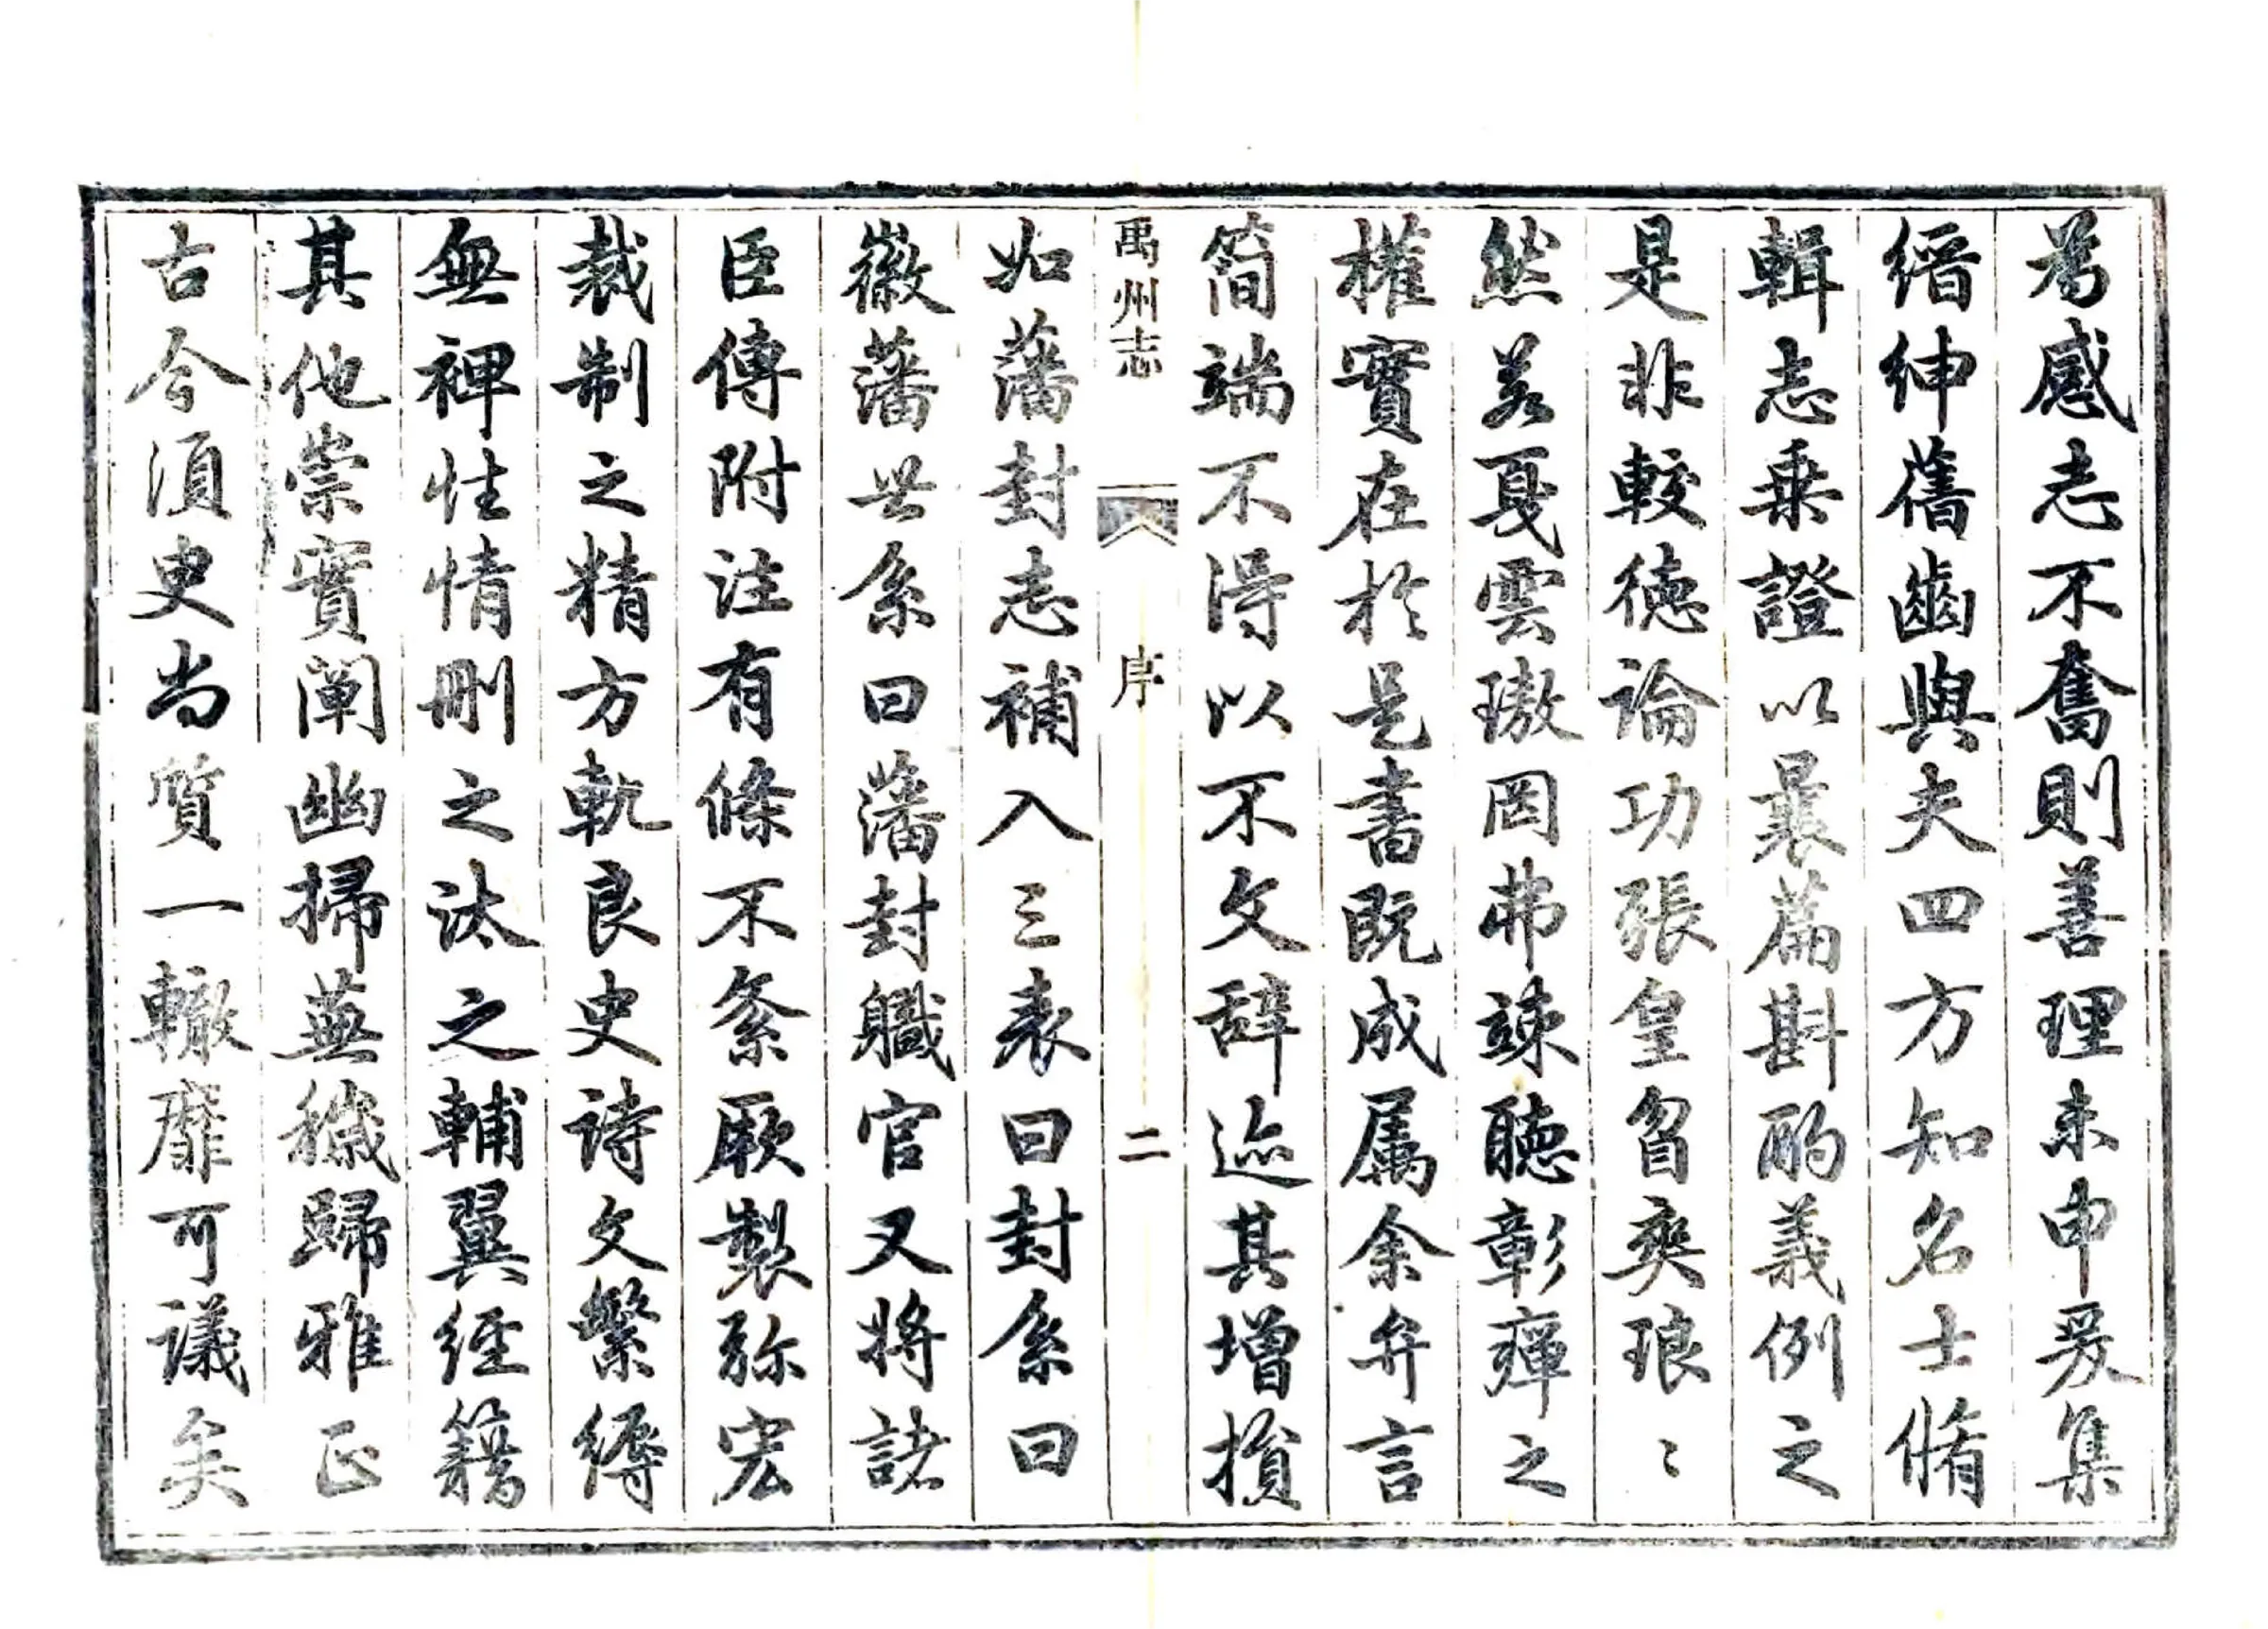 為感志不奮則善理未申爰集
縉紳舊齒與夫四方知名士脩
輯志乗證以曩篇斟酌義例之
是非較德論功張皇習奕琅〻
然若戛雲璈罔弗竦聽彰癉之
權實在於是書既成属余弁言
简端不得以不文辞迹其增損
禹州志 序 二
如藩封志補入三表曰封系曰
徽藩世系曰藩封職官又將諸
臣傳附注有條不紊厥製弥宏
裁制之精方軌良史詩文繁縟
無裨性情刪之汰之輔翼經籍
其他崇實闡幽掃蕪穢歸雅正
古今須史尚質一轍靡可議矣